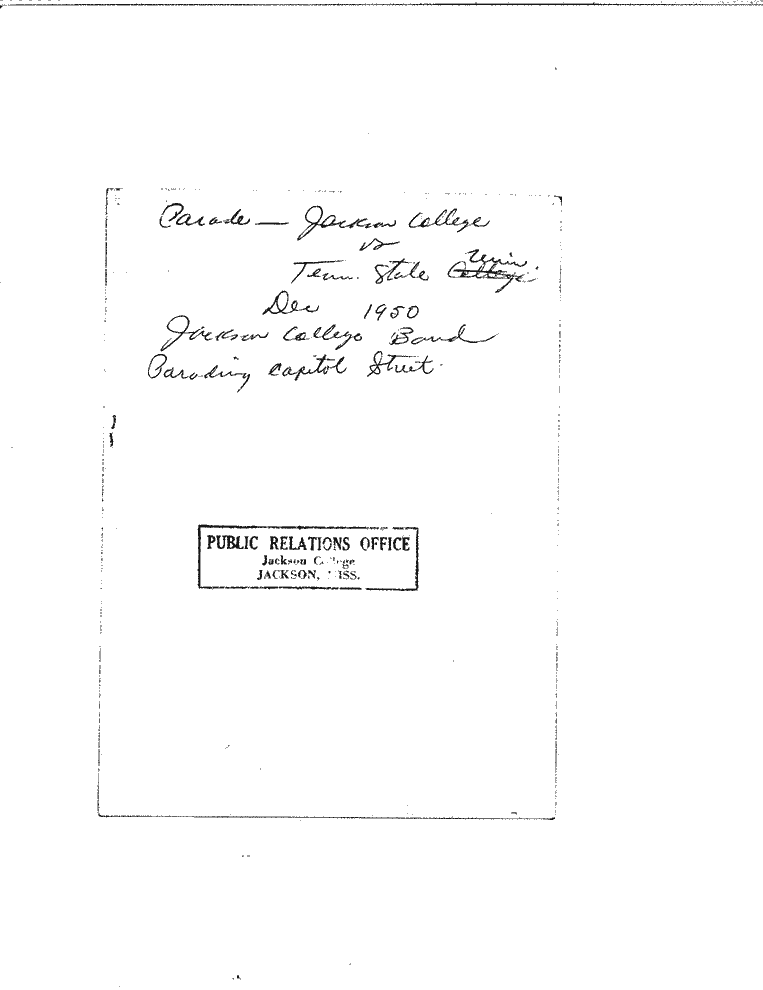 Parade — Jackson College
vs
Tenn. State College Univ.
Dec 1950
Jackson College Band
Parading Capitol Street.
PUBLIC RELATIONS OFFICE
Jackson College
JACKSON, MISS.